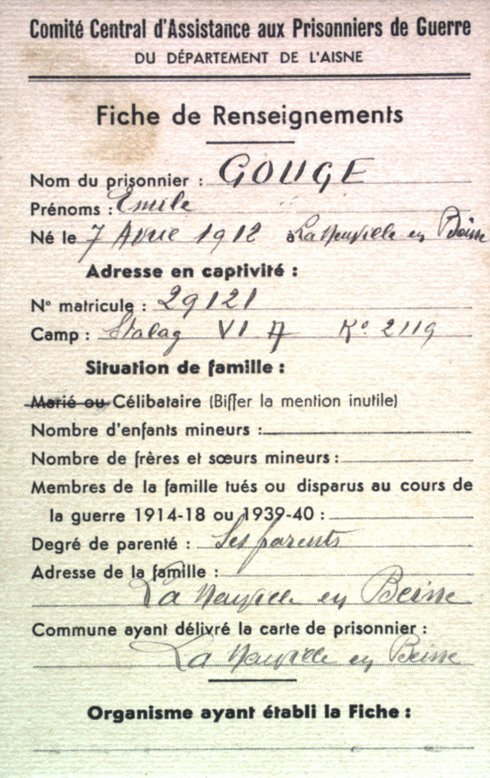 Comité Central d'Assistance aux Prisonniers de Guerre
DU DÉPARTEMENT DE L'AISNE
Fiche de Renseignements
Nom du prisonnier : GOUGE
Prénoms : Emile
Né le 7 Avril 1912 à La Neuville en Beine
Adresse en captivité :
N° matricule : 29121
Camp : Stalag VI A K° 2119
Situation de famille :
Marié ou Célibataire (Biffer la mention inutile)
Nombre d'enfants mineurs :
Nombre de frères et sœurs mineurs :
Membres de la famille tués ou disparus au cours de
la guerre 1914-18 ou 1939-40 :
Degré de parenté : Ses parents
Adresse de la famille :
La Neuville en Beine
Commune ayant délivré la carte de prisonnier :
La Neuville en Beine
Organisme ayant établi la Fiche :